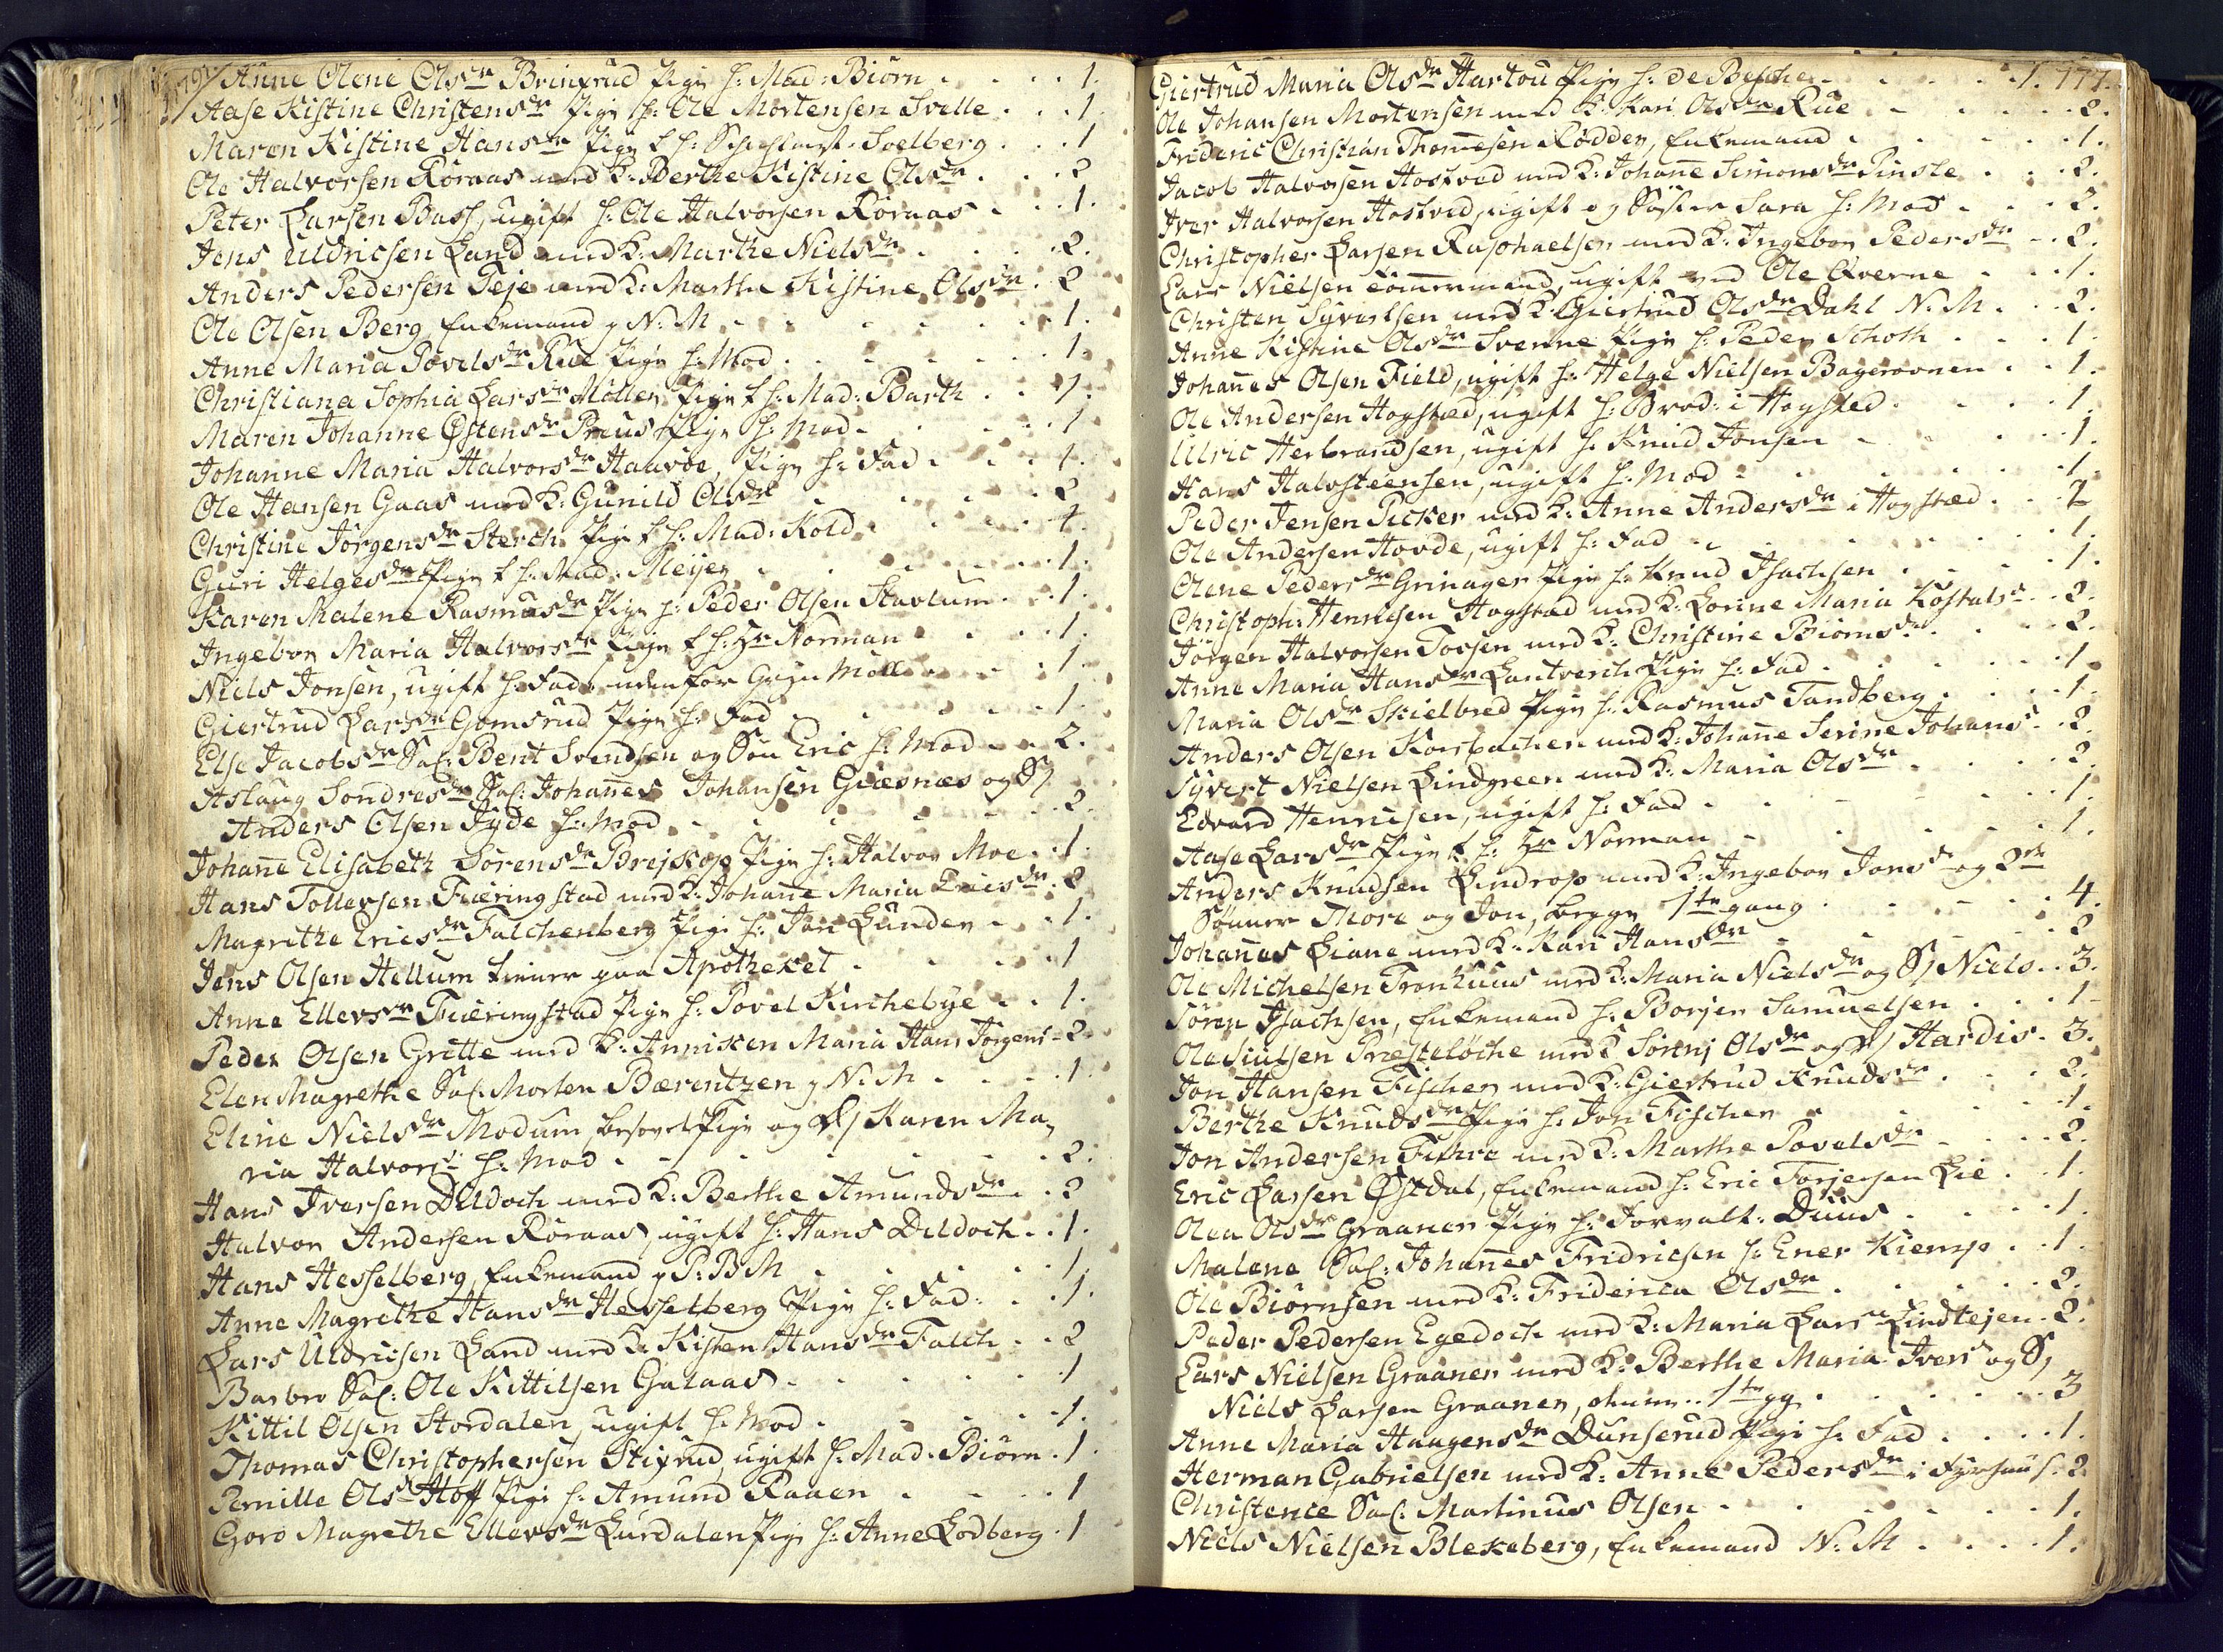 Anne Olene Olsdr Brinxrud Pige h: Mad: Biørn . . . . 1.
Aase Kistine Christensdr Pige h: Ole Mortensen Svelle . . . 1.
Maren Kistine Hansdr Pige f h: Solberg . . . 1
Ole Halvorsen Røraas med K: Berthe Kistine Olsdr . . . 2
Peter Larsen Bass, ugift h: Ole Halvorsen Røraas . . . 1.
Jens Uldricsen Land med K: Marthe Nielsdr . . . . 2.
Anders Pedersen Teje med K: Marthe Kistine Olsdr . 2
Ole Olsen Berg Enkemand p N: M . . . . . 1.
Anne Maria Povelsdr Rue Pige h: Mod . . . . . 1.
Christiana Sophia Larsdr Møller Pige f h: Mad: Barth . . 1.
Maren Johanne Østensdr Preus Pige h: Mod . . . . 1
Johanne Maria Halvorsdr Haavoe, Pige h: Fad . . . 1.
Ole Hansen Gaas med K: Gunild Olsdr . . . . 2
Christine Jørgensdr Sterch Pige f h: Mad: Kold . . . . 1.
Guri Helgesdr Pige f h: Mad: Meijer . . . . . 1.
Karen Malene Rasmusdr Pige h: Peder Olsen Stavlum . . 1.
Ingebor Maria Halvorsdr Pige f h: Hr Norman . . . . 1.
Niels Jonsen, ugift h: Fad: uden for Møll . . . . 1.
Giertrud Larsdr Gomsrud Pige h: Fad . . . . . 1.
Else Jacobsdr Sal: Bent Svendsen og Søn Eric h: Mod . . 2.
Aslaug Sondresdr Sal: Johañes Johansen Giæsnæs og S/
Anders Olsen Jyde h: Mod . . . . . . . 2.
Johañe Elisabeth Sørensdr Brejskop Pige h: Halvor Moe . . 1.
Hans Tollevsen Fiæringstad med K: Johañe Maria Ericsdr . 2
Magrethe Ericsdr Falchenberg Pige h: Jon Lunder . . 1.
Jens Olsen Hellum tiener paa Apotheket . . . . . 1
Anne Ellevsdr Fiæringstad Pige h: Povel Kirchebye . . 1.
Peder Olsen Gritte med K: Annisken Maria Hans Jørgens - 2.
Elen Magrethe Sal: Morten Bærentzen p N: M . . . . 1.
Eline Nielsdr Modum besovet Pige og D/ Karen Ma,
ria Halvorsd h: Mod . . . . . . . . 2.
Hans Iversen Dildoch med K: Berthe Amundsdr . . 2
Halvor Andersen Røraas, ugift h: Hans Dildoch . . 1.
Hans Hesselberg, Enkemand p P: B M . . . . . 1.
Anne Magrethe Hansdr Hesselberg Pige h: Fad: . . . 1.
Lars Uldricsen Land med K: Kisten Hansdr Falch . . 2
Barbro Sal: Ole Kittilsen Galaas . . . . . . 1
Kittil Olsen Stordalen, ugift h: Mod . . . . . 1.
Thomas Christophersen Stixrud, ugift h: Mad: Biørn . 1.
Pernille Olsd Hoff Pige h: Amund Raaen . . . . 1
Goro Magrethe Ellevsdr Lurdalen Pige h: Anne Lodberg . 1
Giertrud Maria Olsdr Hartou Pige h: de Besche . . . . 1. 177.
Ole Johansen Mortensen med K: Kari Olsdr Rue . . . . 2.
Frideric Christian Thomesen Rødder, Enkemand . . . . 1.
Jacob Halvorsen Hostved med K: Johañe Simonsdr Pinsle . . . 2.
Iver Halvorsen Hostved, ugift og Søster Sara h: Mod . . . 2.
Christopher Larsen Raphaelsen med K: Ingebor Pedersdr . . 2.
Lars Nielsen Tömermand, ugift ved Ole Qverne . . . 1.
Christen Syvertsen med K: Giertrud Olsdr Dahl N: M . . . 2.
Anne Kistine Olsdr Svenne Pige h: Peder Schoth . . . 1.
Johañes Olsen Field, ugift h: Helge Nielsen Bagerovnen . . 1.
Ole Andersen Hogstad, ugift h: Brod: i Hogsted . . . . 1.
Ulric Herbrandsen, ugift h: Knud Jonsen . . . . . 1.
Hans Halvsteensen, ugift h: Mod . . . . . . . 1.
Peder Jensen Picker med K: Anne Andersdr i Hogstad . . . 2
Ole Andersen Hovde, ugift h: Fad . . . . . . 1.
Olene Pedersdr Grinager Pige h: Knud Isachsen . . . . 1.
Christoph: Henricsen Hogstad med K: Lorine Maria . . 2.
Jørgen Halvorsen Tovsen med K: Christine Biørnsdr . . . . 2.
Anne Maria Hansdr Lantverch Pige h: Fad . . . . . 1.
Maria Olsdr Skielbred Pige h: Rasmus Tandberg . . . . 1.
Anders Olsen Korsbachen med K: Johañe Serine Johansd . . 2.
Syvert Nielsen Lindgreen med K: Maria Olsdr . . . . 2.
Edvard Henricsen, ugift h: Fad . . . . . . . 1.
Aase Larsdr Pige f h: Hr Norman . . . . . . 1.
Anders Knudsen Lindrop med K: Ingebor Jonsd og 2de
Sønner Thore og Jon, begge 1te gang . . . . . . 4.
Johañes Liane med K: Kari Hansdr . . . . . . 2
Ole Michelsen Tronhuus med K: Maria Nielsdr og S/ Niels . . 3.
Søren Isachsen, Enkemand h: Borger Samuelsen . . . 1.
Ole Siulsen Præsteløche med K Sirenj Olsdr og D/ Hardis . 3.
Jon Hansen Fischer med K: Giertrud Knudsdr . . . . 2.
Berthe Knudsdr Pige h: Jon Fischer . . . . . 1.
Jon Andersen Fuhre med K: Marthe Povelsdr . . . . 2.
Eric Larsen Østdal, Enkemand h: Eric Torjersen Lie . . 1.
Olea Olsdr Graaner Pige h: Forvalt: Duus . . . . . 1.
Malene Sal: Johañes Fridricsen h: Ener Kiemp . . . 1.
Ole Biørnsen med K: Friderica Olsdr . . . . . 2.
Peder Pedersen Egedoch med K: Maria Larsdr Lindtejen . 2.
Lars Nielsen Graaner med K: Berthe Maria Ivers og S/
Niels Larsen Graaner, 1te gg . . . . . . 3
Anne Maria Haagensdr Dunserud Pige h: Fad . . . . 1.
Herman Gabrielsen med K: Anne Pedersdr i . 2
Christence Sal: Martinus Olsen . . . . . . 1.
Niels Nielsen Blekeberg, Enkemand N: M . . . . 1.